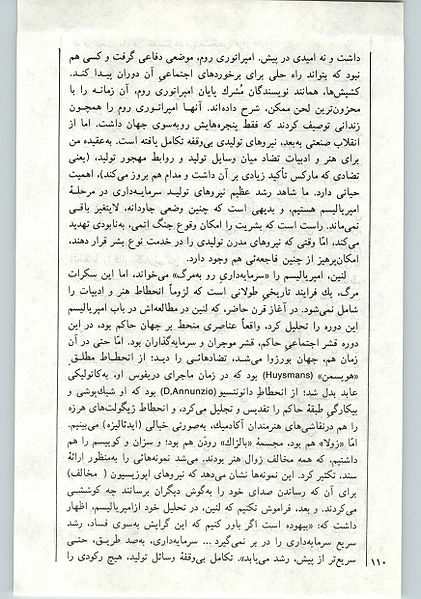 داشت و نه امیدی در پیش. امپراتوری روم، موضعی دفاعی گرفت و کسی هم
نبود که بتواند راه حلی برای برخوردهای اجتماعی آن دوران پیدا کند.
کشیش‌ها، همانند نویسندگان مُشرك پایان امپراتوری روم، آن زمانه را با
محزون‌ترین لحن ممکن، شرح داده‌اند. آنها امپراتوری روم را همچون
زندانی توصیف کردند که فقط پنجره‌هایش روبه‌سوی جهان داشت. اما از
انقلاب صنعتی به‌بعد، نیروهای تولیدی بی‌وقفه تکامل یافته است. به‌عقیده من
برای هنر و ادبیات تضاد میان وسایل تولید و روابط مهجور تولید، (یعنی
تضادی که مارکس تأکید زیادی بر آن داشت و مدام هم بروز می‌کند)، اهمیت
حیاتی دارد. ما شاهد رشد عظیم نیروهای تولید سرمایه‌داری در مرحلهٔ
امپریالیسم هستیم، و بدیهی است که چنین وضعی جاودانه، لایتغیر باقی
نمی‌ماند. راست است که بشریت را امکان وقوع جنگ اتمی، به‌نابودی تهدید
می‌کند، امّا وقتی که نیروهای مدرن تولیدی را در خدمت نوع بشر قرار دهند،
امکان‌پرهیز از چنین فاجعه‌ئی هم وجود دارد.
لنین، امپریالیسم را «سرمایه‌داریِ رو به‌مرگ» می‌خواند، اما این سکرات
مرگ، یك فرایند تاریخیِ طولانی است که لزوماً انحطاط هنر و ادبیات را
شامل نمی‌شود. در آغاز قرن حاضر، که لنین در مطالعه‌اش در باب امپریالیسم
این دوره را تحلیل کرد، واقعاً عناصری منحط بر جهان حاکم بود، در این
دوره قشر اجتماعیِ حاکم، قشر موجران و سرمایه‌گذاران بود. امّا حتی در آن
زمان هم، جهان بورژوا می‌شد، تضادهائی را دید: از انحطاط مطلقِ
«هویسمن» (Huysmans) بود که در زمان ماجرای دریفوس او، به‌کاتولیکی
عابد بدل شد؛ از انحطاطِ دانونتسیو(D,Annunzio) بود که او شیك‌پوشی و
بیکارگیِ طبقهٔ حاکم را تقدیس و تجلیل می‌کرد، و انحطاط ژیگولت‌های هرزه
را هم درنقاشی‌های هنرمندان آکادمیك، به‌صورتی خیالی (ایدئالیزه) می‌بینیم.
امّا «زولا» هم بود، مجسمهٔ «بالزاك» رودَن هم بود؛ و سزان و کوبیسم را هم
داشتیم، که همه مخالف زوال هنر بودند. می‌شد نمونه‌هائی را به‌منظور ارائهٔ
سند، تکثیر کرد. این نمونه‌ها نشان می‌دهد که نیروهای اپوزیسیون ( مخالف)
برای آن که رساندن صدای خود را به‌گوش دیگران برسانند چه کوششی
می‌کردند. و بعد، فراموش نکنیم که لنین، در تحلیل خود ازامپریالیسم، اظهار
داشت که: «بیهوده است اگر باور کنیم که این گرایش به‌سوی فساد، رشد
سریع سرمایه‌داری را در بر نمی‌گیرد ... سرمایه‌داری، به‌صد طریق، حتی
سریع‌تر از پیش، رشد می‌یابد». تکامل بی‌وقفهٔ وسائل تولید، هیچ رکودی را
۱۱۰